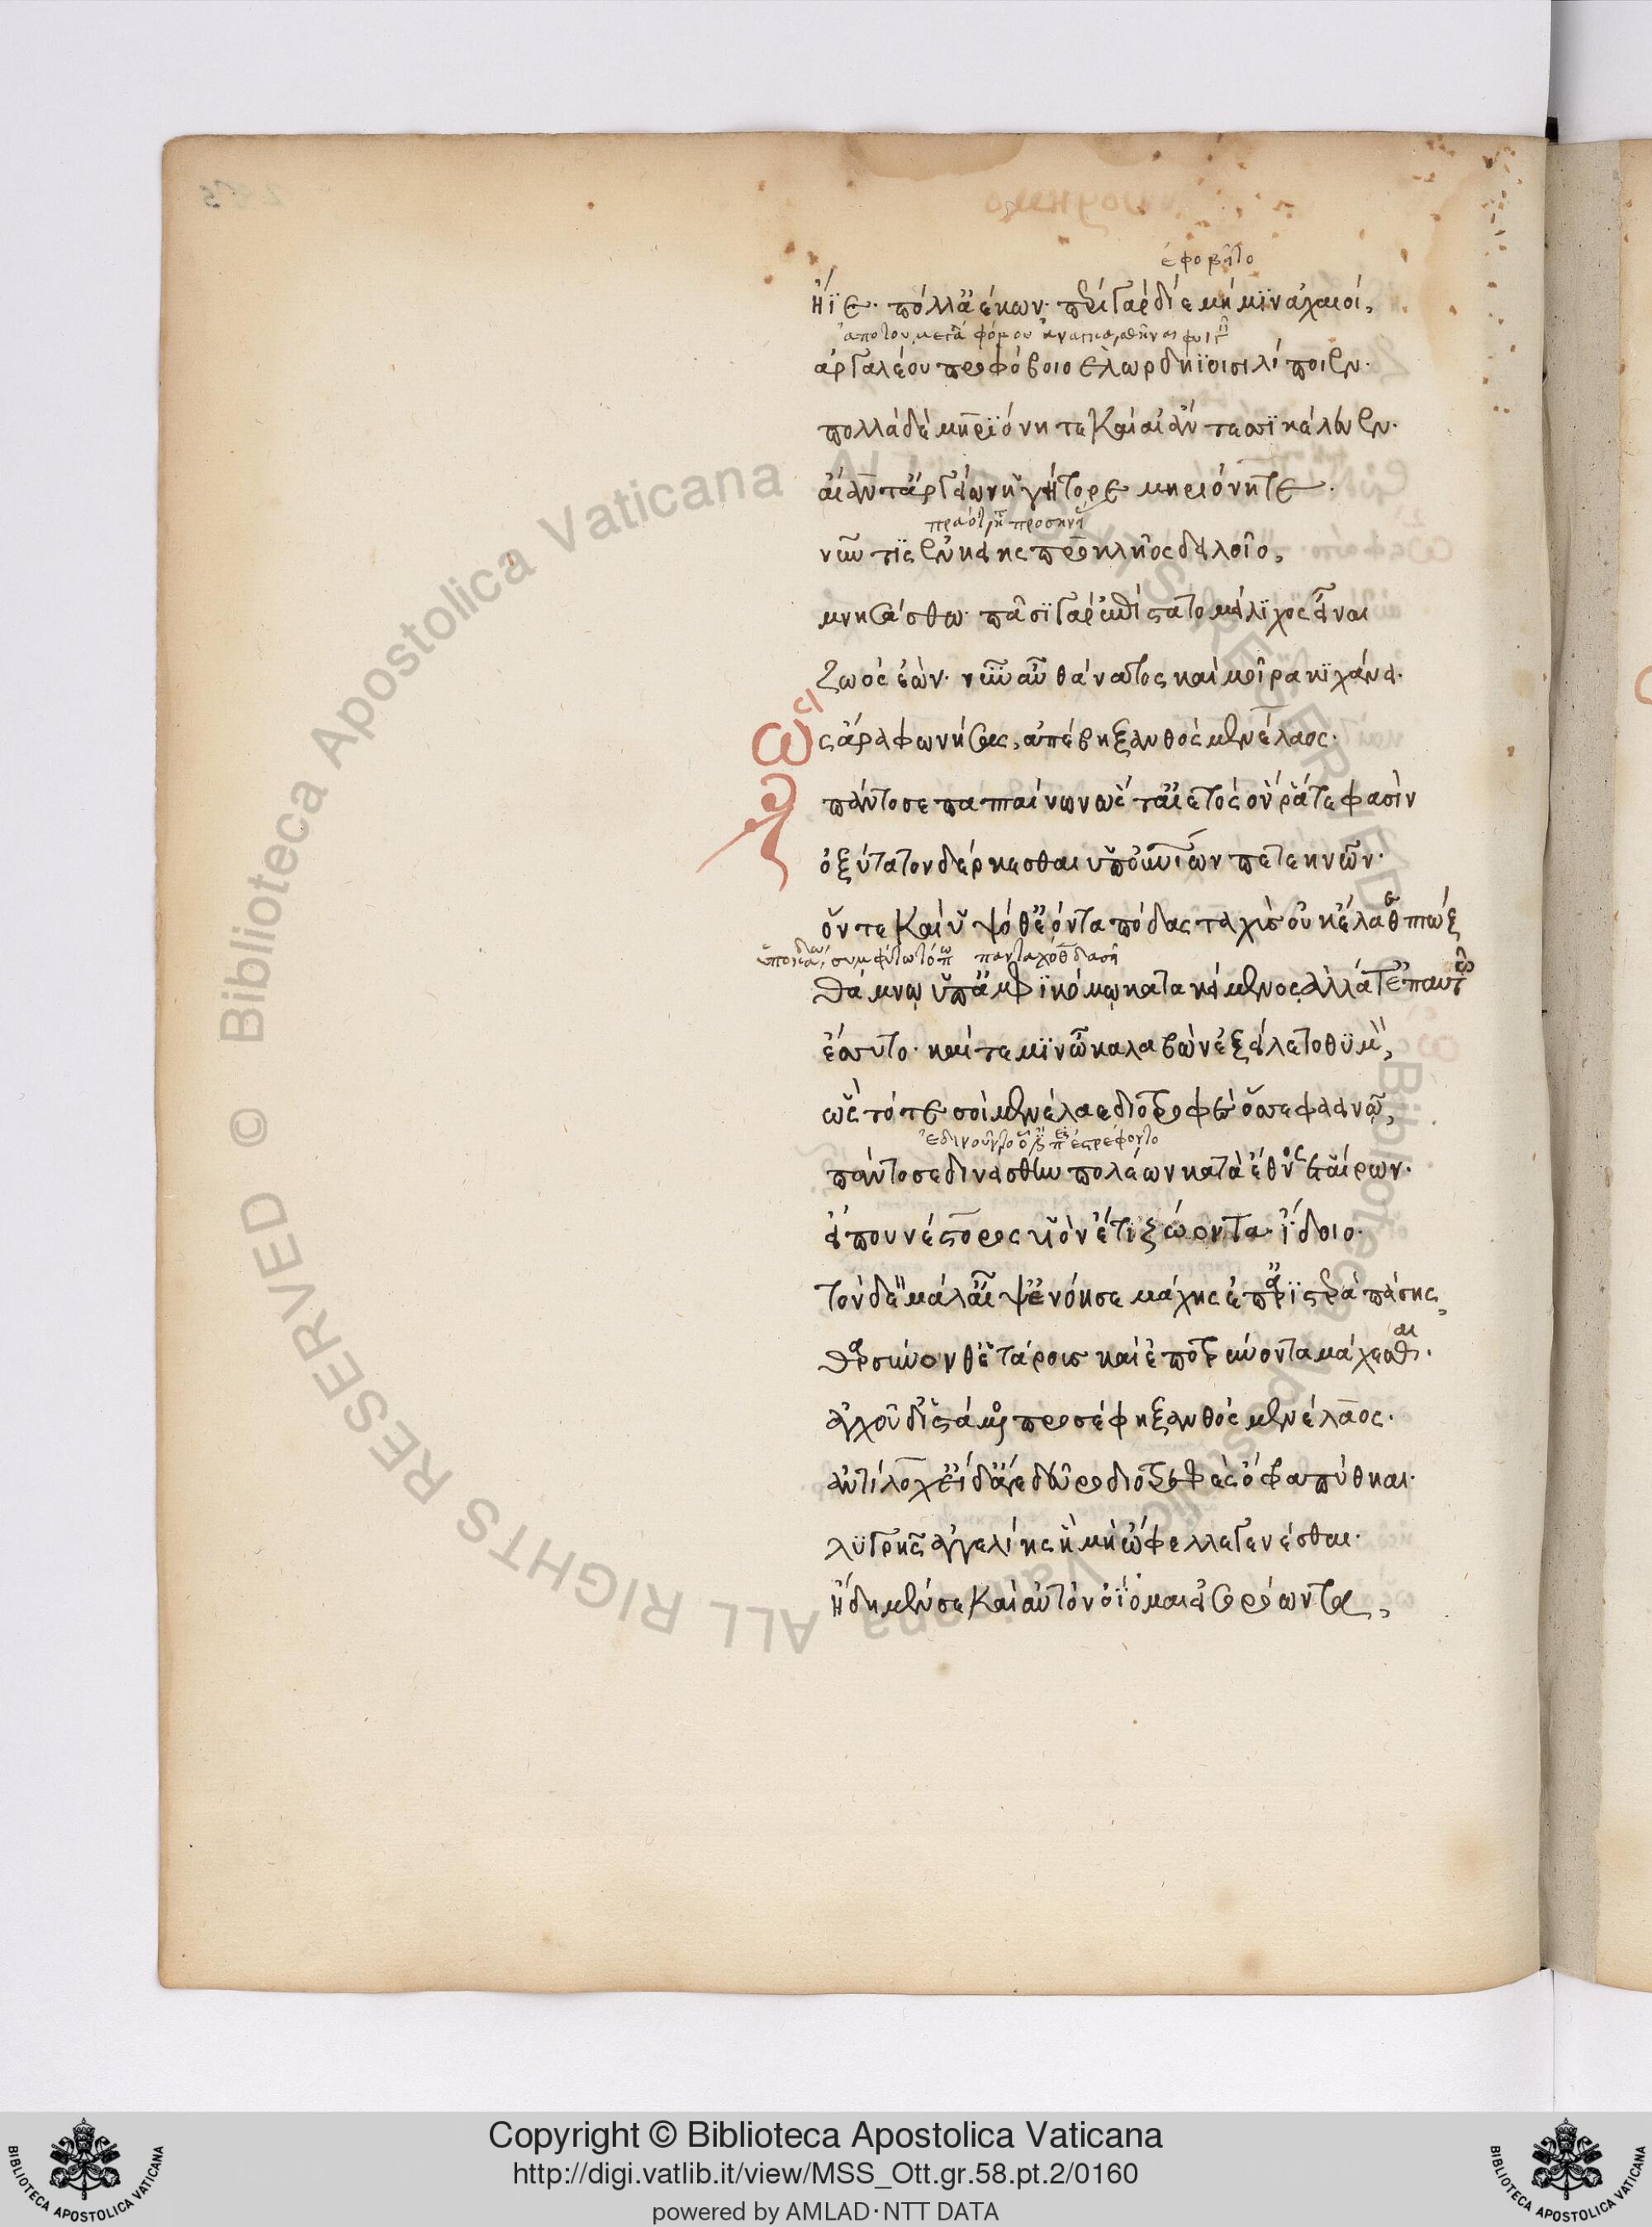 ἐφοβεῖτο
ἤϊε· πόλλ' ἀέκων· περὶ γὰρ δίε μή μϊν ἀχαιοί,
ἀργαλέου πρὸ φόβοιο ἕλωρ δηΐοισι λίποιεν·
πολλὰ δὲ μηρϊόνη τε καὶ αἰάντεσσϊ κέλευεν·
αἴαντ' ἀργείων ἡγήτορε μηριόνητε·
νῦν τϊς ἐνηείης πατροκλῆος δειλοῖο,
μνησάσθω· πᾶσϊ γὰρ ἐπίστατο μείλϊχος εἶναι
ζωὸς ἐών· νῦν αὖ θάνατος καὶ μοῖρα κϊχάνει·
ὣς ἄρα φωνήσας, ἀπέβη ξανθὸς μενέλαος·
πάντοσε παπταίνων ὥς τ' αἰετὸς ὅν ῥά τε φασὶν
ὀξύτατον δέρκεσθαι ὑπουρανίων πετεηνῶν·
ὅν τε καὶ ὑψόθ' ἐόντα πόδας ταχὺς οὐκ ἔλαθε πτώξ
θάμνῳ ὑπ' ἀμφϊκόμῳ κατακείμενος ἀλλά τ' ἐπ' αὐτῶ
ἔσσυτο· καί τε μϊν ὦκα λαβὼν ἐξείλετο θϋμὸν,
ὣς τότε σοὶ μενέλαε διοτρεφὲς ὄσσε φαεινὼ,
ἐδινοῦντο ὅ ἐστι περιεστρέφοντο
πάντοσε δινείσθην πολέων κατὰ ἔθνος ἑταίρων·
εἴ που νέστορος υἱὸν ἔτϊ ζώοντα ἴδοιο·
τὸν δὲ μάλ' αἶψ' ἐνόησε μάχης ἐπ' ἀρϊστερὰ πάσης,
θαρσύνονθ' ἑτάρους καὶ ἐποτρύνοντα μάχεσθαι·
ἀγχοῦ δ' ἱστάμενος προσέφη ξανθὸς μενέλαος·
ἀντίλοχ' εἰ δ' ἄγε δεῦρο διοτρεφὲς ὄφρα πύθηαι·
λϋγρῆς ἀγγελίης ἣ μὴ ὤφελλε γενέσθαι·
ἤδη μέν σε καὶ αὐτὸν ὀΐομαι εἰσορόωντα,
Copyright © Biblioteca Apostolica Vaticana
http://digi.vatlib.it/view/MSS_Ott.gr.58.pt.2/0160
powered by AMLAD·NTT DATA